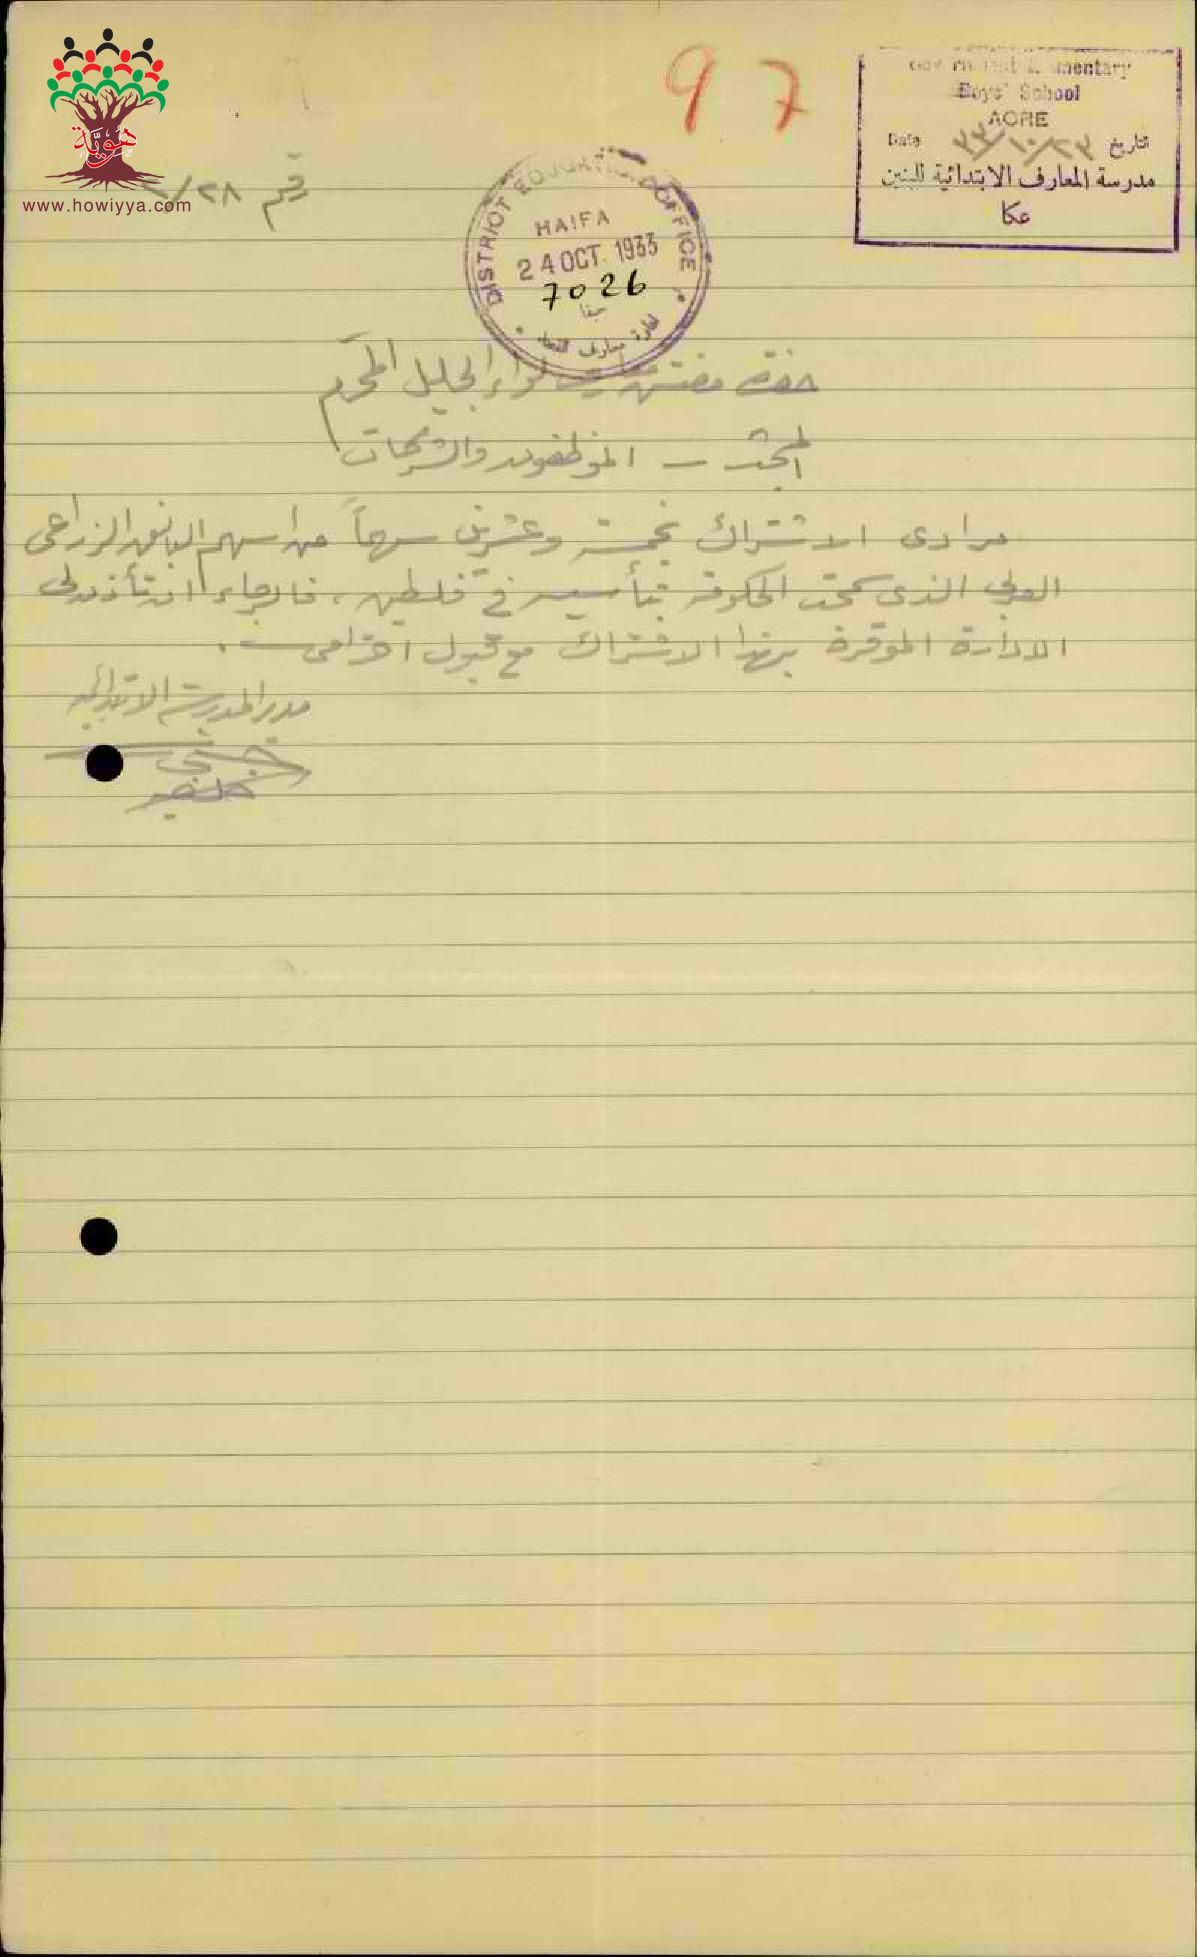 97
Government Elementary
Boys' School
ACRE
Date ٢٣/١٠/٣٣ تاريخ
مدرسة المعارف الابتدائية للبنين
عكا
هوية
www.howiyya.com
رقم ٢٨/
DISTRICT EDUCATION OFFICE
HAIFA
24 OCT. 1933
7026
حيفا
حضرة مفتش معارف لواء الجليل المحترم
المبحث – الموظفون والشركات
مرادى الاشتراك بخمسة وعشرين سهماً من اسهم البنك الزراعي
العربي الذى سمحت الحكومة بتأسيسه في فلسطين، فالرجاء ان تأذن لي
الادارة الموقرة بهذا الاشتراك مع قبول احترامي.
مدير المدرسة الابتدائية